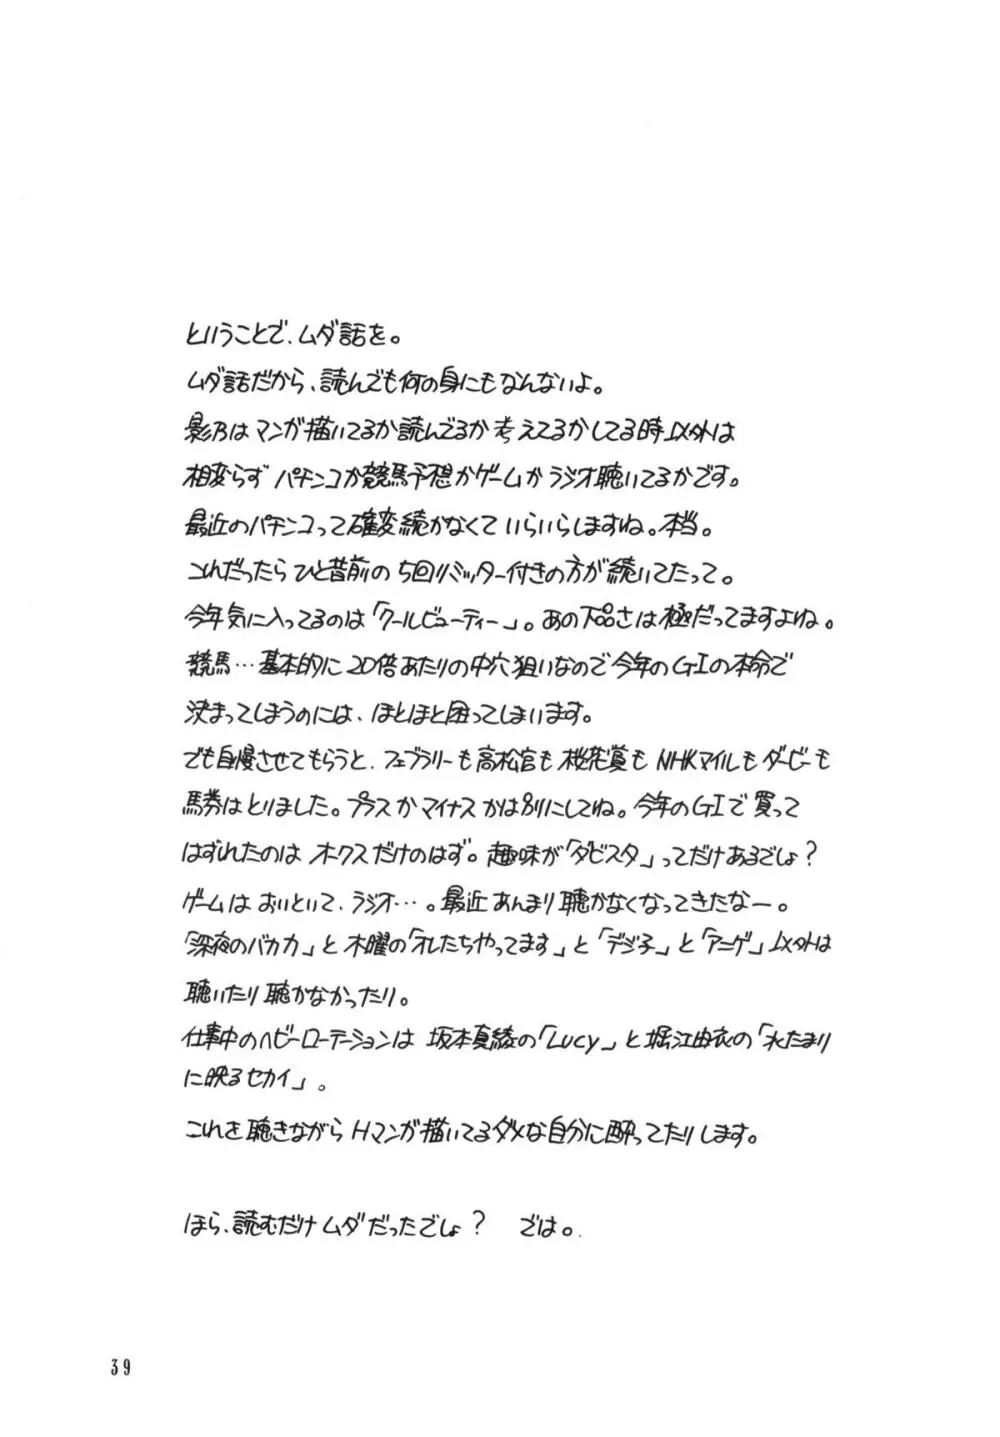 ということで、ムダ話を。
ムダ話だから、読んでも何の身にもなんないよ。
影乃はマンガ描いてるか読んでるか考えてるかしてる時以外は
相変らずパチンコか競馬予想かゲームかラジオ聴いてるかです。
最近のパチンコって確変続かなくていらいらしますね。本当。
これだったらひと昔前の5回リミッター付きの方が続いてたって。
今年気に入ってるのは「クールビューティー」。あの下品さは極だってますよね。
競馬…基本的に20倍あたりの中穴狙いなので今年のGIの本命で
決まってしまうのには、ほとほと困ってしまいます。
でも自慢させてもらうと、フェブラリーも高松宮も桜花賞もNHKマイルもダービーも
馬券はとりました。プラスかマイナスかは別にしてね。今年のGIで買って
はずれたのはオークスだけのはず。趣味が「ダビスタ」ってだけあるでしょ?
ゲームはおいといて、ラジオ…。最近あんまり聴かなくなってきたなー。
「深夜のバカ力」と木曜の「オレたちやってます」と「デジ子」と「アニゲ」以外は
聴いたり聴かなかったり。
仕事中のヘビーローテーションは坂本真綾の「Lucy」と堀江由衣の「水たまり
に映るセカイ」。
これを聴きながらHマンガ描いてるダメな自分に酔ってたりします。
ほら、読むだけムダだったでしょ? では。
39